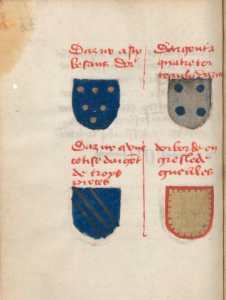 Dazur a six
besans dor
Dargent a
quatre tor
teaulx dazur
Dazur a une
cotise dargent
de troys
pieces
dor borde en
greslede
gueulles